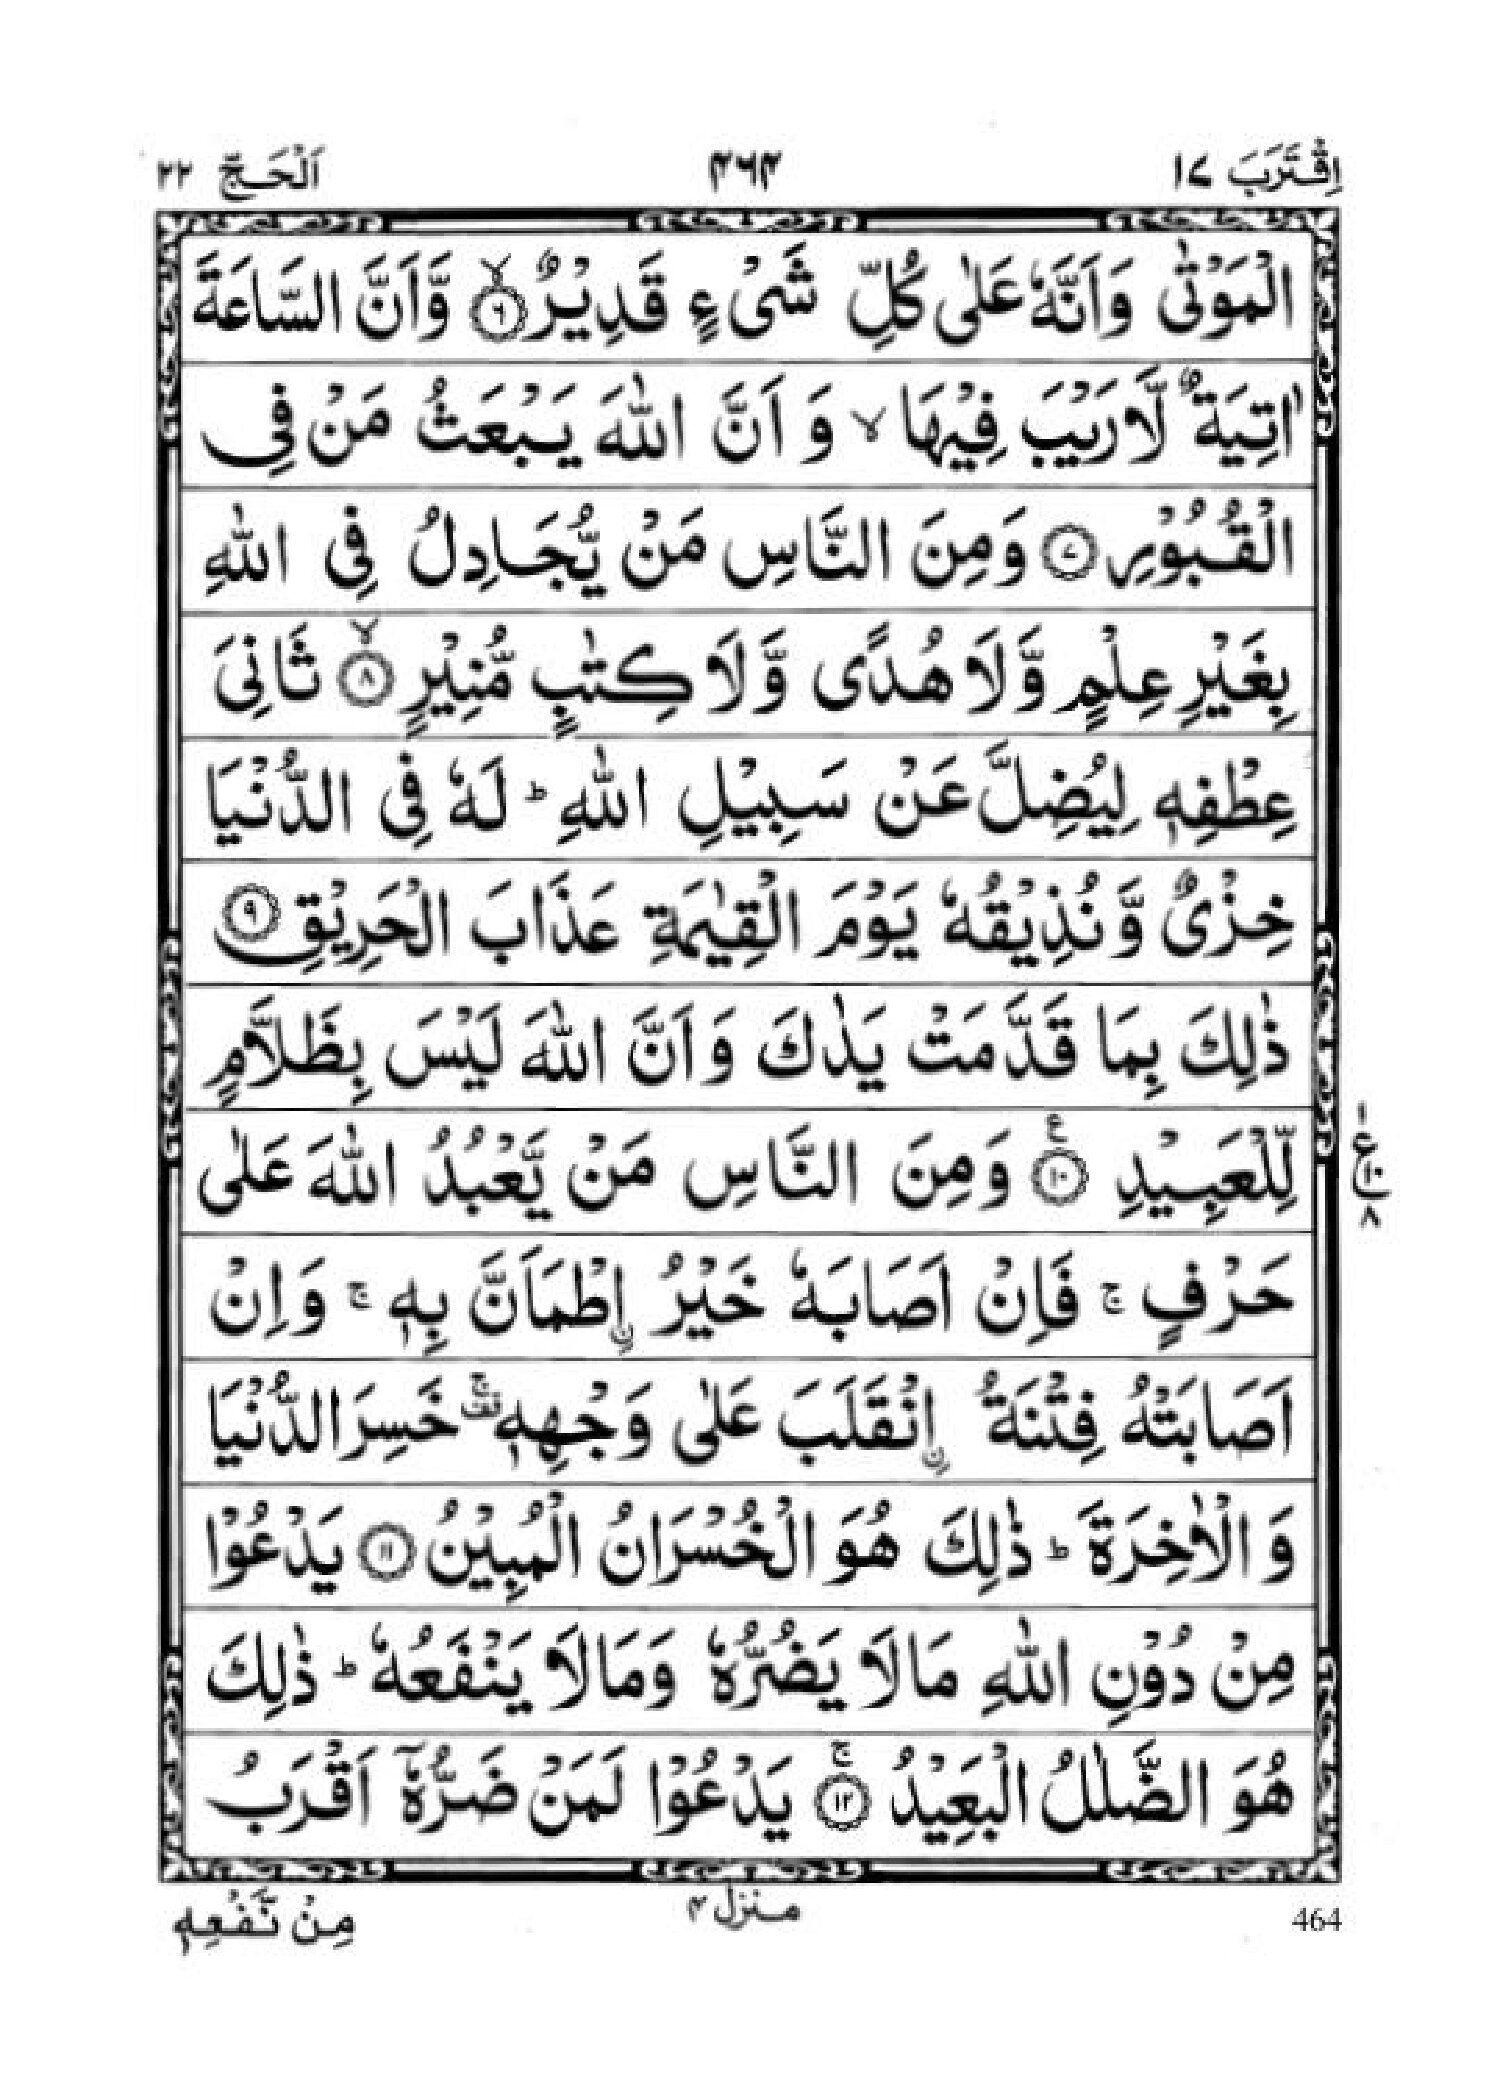 اِقْتَرَبَ ١٧ ٤٦٤ اَلْحَجّ ٢٢
الْمَوْتٰى وَاَنَّهٗ عَلٰى كُلِّ شَىْءٍ قَدِيْرٌ ۙ‏﴿۶﴾ وَّاَنَّ السَّاعَةَ
اٰتِيَةٌ لَّا رَيْبَ فِيْهَا ۙ وَ اَنَّ اللّٰهَ يَـبْعَثُ مَنْ فِى
الْقُبُوْرِ ﴿۷﴾ وَمِنَ النَّاسِ مَنْ يُّجَادِلُ فِى اللّٰهِ
بِغَيْرِ عِلْمٍ وَّلَا هُدًى وَّلَا كِتٰبٍ مُّنِيْرٍ ۙ‏﴿۸﴾ ثَانِىَ
عِطْفِهٖ لِيُضِلَّ عَنْ سَبِيْلِ اللّٰهِ ؕ لَهٗ فِى الدُّنْيَا
خِزْىٌ وَّنُذِيْقُهٗ يَوْمَ الْقِيٰمَةِ عَذَابَ الْحَرِيْقِ ﴿۹﴾
ذٰلِكَ بِمَا قَدَّمَتْ يَدٰكَ وَاَنَّ اللّٰهَ لَيْسَ بِظَلَّامٍ
لِّلْعَبِيْدِ ﴿۱۰﴾ ع وَمِنَ النَّاسِ مَنْ يَّعْبُدُ اللّٰهَ عَلٰى
١ ع ١٠ ٨
حَرْفٍ ۚ فَاِنْ اَصَابَهٗ خَيْرُ ۨاِطْمَاَنَّ بِهٖ ۚ وَاِنْ
اَصَابَتْهُ فِتْنَةُ ۨانْقَلَبَ عَلٰى وَجْهِهٖ ۚ قف خَسِرَ الدُّنْيَا
وَالْاٰخِرَةَ ؕ ذٰلِكَ هُوَ الْخُسْرَانُ الْمُبِيْنُ ﴿۱۱﴾ يَدْعُوْا
مِنْ دُوْنِ اللّٰهِ مَا لَا يَضُرُّهٗ وَمَا لَا يَنْفَعُهٗ ؕ ذٰلِكَ
هُوَ الضَّلٰلُ الْبَعِيْدُ ۚ‏﴿۱۲﴾ يَدْعُوْا لَمَنْ ضَرُّهٗۤ اَقْرَبُ
464 منزل ٤ مِنْ نَّفْعِهٖ